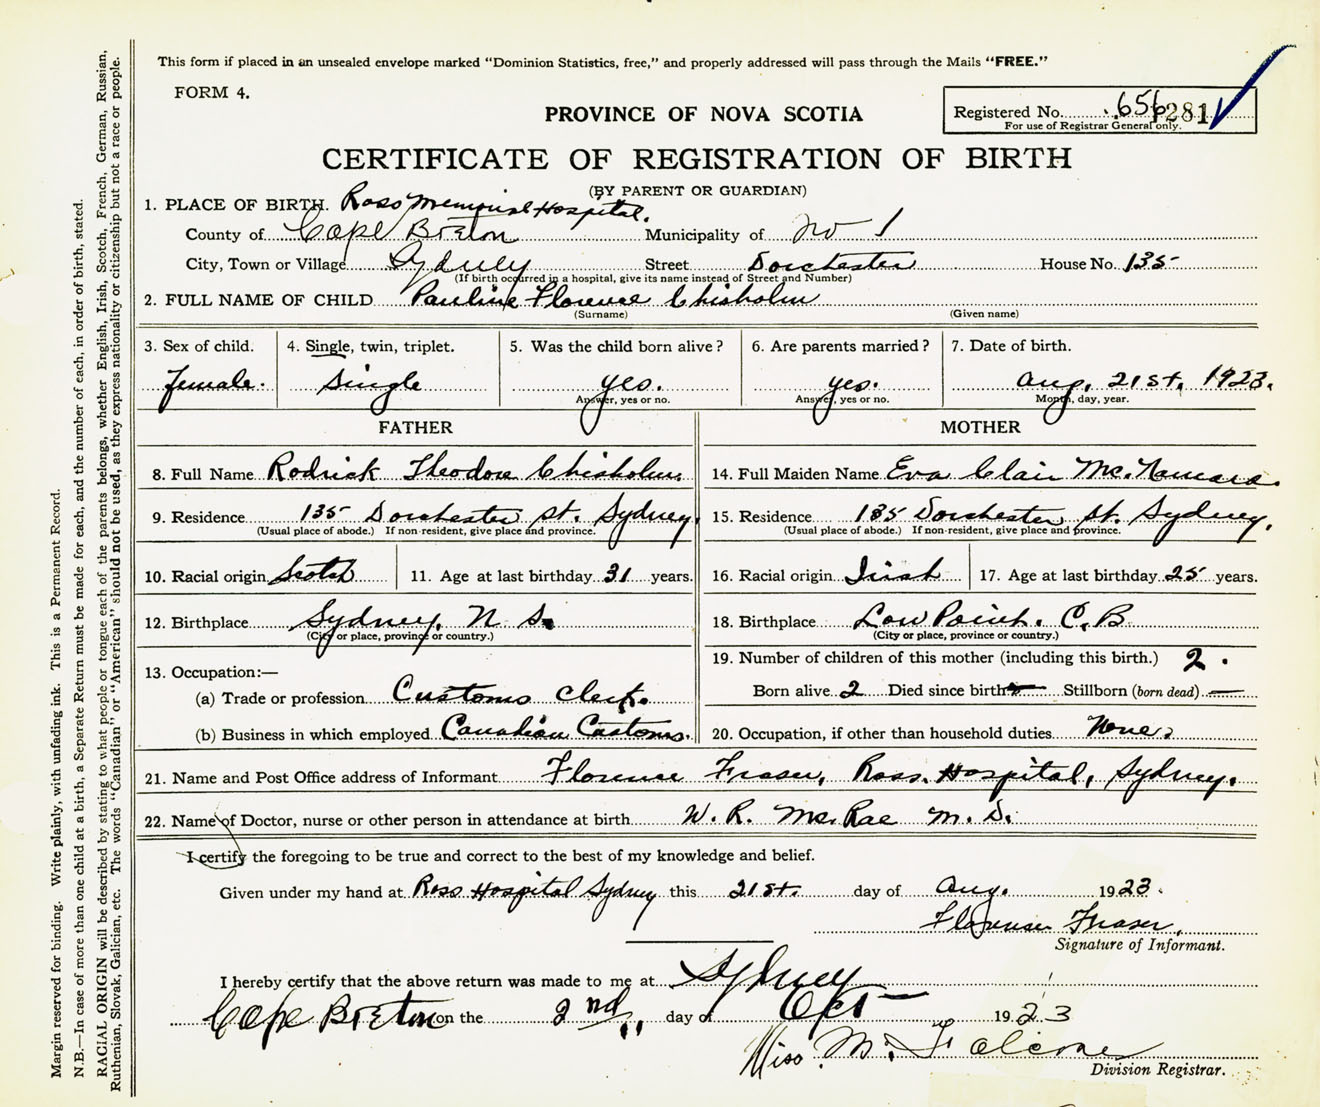 This form if placed in an unsealed envelope marked “Dominion Statistics, free,” and properly addressed will pass through the Mails “FREE.”
FORM 4.
PROVINCE OF NOVA SCOTIA
Registered No. 656 1281
For use of Registrar General only.
CERTIFICATE OF REGISTRATION OF BIRTH
(BY PARENT OR GUARDIAN)
1. PLACE OF BIRTH. Ross Memorial Hospital.
County of Cape Breton Municipality of No 1
City, Town or Village Sydney Street Dorchester House No. 135
(If birth occurred in a hospital, give its name instead of Street and Number)
2. FULL NAME OF CHILD Pauline Florence Chisholm
(Surname) (Given name)
3. Sex of child. 4. Single, twin, triplet. 5. Was the child born alive? 6. Are parents married? 7. Date of birth.
female. Single yes. yes. Aug. 21st. 1923.
Answer, yes or no. Answer, yes or no. Month, day, year.
FATHER MOTHER
8. Full Name Rodrick Theodore Chisholm. 14. Full Maiden Name Eva Clair McNamara.
9. Residence 135 Dorchester st. Sydney. 15. Residence 135 Dorchester st. Sydney.
(Usual place of abode.) If non-resident, give place and province. (Usual place of abode.) If non-resident, give place and province.
10. Racial origin Scotch 11. Age at last birthday 31 years. 16. Racial origin Irish 17. Age at last birthday 25 years.
12. Birthplace Sydney. N S. 18. Birthplace Low Point. C. B
(City or place, province or country.) (City or place, province or country.)
13. Occupation:— 19. Number of children of this mother (including this birth.) 2.
(a) Trade or profession Customs clerk. Born alive 2 Died since birth — Stillborn (born dead) —
(b) Business in which employed Canadian Customs. 20. Occupation, if other than household duties None.
21. Name and Post Office address of Informant Florence Fraser, Ross. Hospital, Sydney.
22. Name of Doctor, nurse or other person in attendance at birth W. R. McRae M. D.
I certify the foregoing to be true and correct to the best of my knowledge and belief.
Given under my hand at Ross Hospital Sydney this 21st. day of Aug. 1923.
Florence Fraser.
Signature of Informant.
I hereby certify that the above return was made to me at Sydney
Cape Breton on the 2nd day of Oct 1923
Miss M.
Division Registrar.
Margin reserved for binding. Write plainly, with unfading ink. This is a Permanent Record.
N.B.—In case of more than one child at a birth, a Separate Return must be made for each, and the number of each, in order of birth, stated.
RACIAL ORIGIN will be described by stating to what people or tongue each of the parents belongs, whether English, Irish, Scotch, French, German, Russian,
Ruthenian, Slovak, Galician, etc. The words “Canadian” or “American” should not be used, as they express nationality or citizenship but not a race or people.